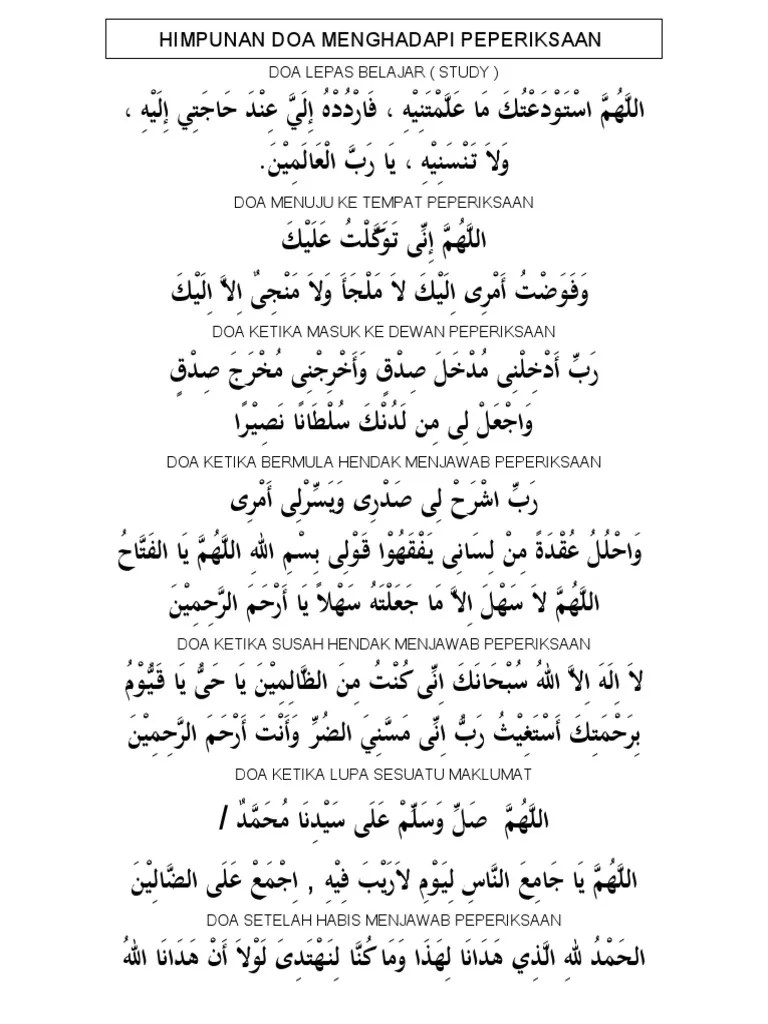 HIMPUNAN DOA MENGHADAPI PEPERIKSAAN
DOA LEPAS BELAJAR ( STUDY )
اللَّهُمَّ اسْتَوْدَعْتُكَ مَا عَلَّمْتَنِيْهِ ، فَارْدُدْهُ إِلَيَّ عِنْدَ حَاجَتِي إِلَيْهِ ،
وَلاَ تَنْسَنِيْهِ ، يَا رَبَّ الْعَالَمِيْنَ.
DOA MENUJU KE TEMPAT PEPERIKSAAN
اللَّهُمَّ إِنِّى تَوَكَّلْتُ عَلَيْكَ
وَفَوَضْتُ أَمْرِى اِلَيْكَ لاَ مَلْجَأَ وَلاَ مَنْجِىٌ اِلاَّ اِلَيْكَ
DOA KETIKA MASUK KE DEWAN PEPERIKSAAN
رَبِّ أَدْخِلْنِى مُدْخَلَ صِدْقٍ وَأَخْرِجْنِى مُخْرَجَ صِدْقٍ
وَاجْعَلْ لِى مِن لَدُنْكَ سُلْطَانًا نَصِيْرًا
DOA KETIKA BERMULA HENDAK MENJAWAB PEPERIKSAAN
رَبِّ اشْرَحْ لِى صَدْرِى وَيَسِّرْلِى أَمْرِى
وَاحْلُلُ عُقْدَةً مِنْ لِسَانِى يَفْقَهُوْا قَوْلِى بِسْمِ اللهِ اللَّهُمَّ يَا الفَتَّاحُ
اللَّهُمَّ لاَ سَهْلَ اِلاَّ مَا جَعَلْتَهُ سَهْلاً يَا أَرْحَمَ الرَّحِمِيْنَ
DOA KETIKA SUSAH HENDAK MENJAWAB PEPERIKSAAN
لاَ اِلَهَ اِلاَّ اللهُ سُبْحَانَكَ اِنِّى كُنْتُ مِنَ الظَّالِمِيْنَ يَا حَىُّ يَا قَيُّوْمُ
بِرَحْمَتِكَ أَسْتَغِيْثُ رَبُّ اِنِّى مَسَّنِيَ الضُرِّ وَأَنْتَ أَرْحَمَ الرَّحِمِيْنَ
DOA KETIKA LUPA SESUATU MAKLUMAT
اللَّهُمَّ صَلِّ وَسَلِّمْ عَلَى سَيْدِنَا مُحَمَّدٌ /
اللَّهُمَّ يَا جَامِعَ النَّاسِ لِيَوْمِ لاَرَيْبَ فِيْهِ , اِجْمَعْ عَلَى الضَالِيْنَ
DOA SETELAH HABIS MENJAWAB PEPERIKSAAN
الحَمْدُ للهِ الَّذِي هَدَانَا لِهَذَا وَمَا كُنَّا لِنَهْتَدِىَ لَوْلاَ أَنْ هَدَانَا اللهُ